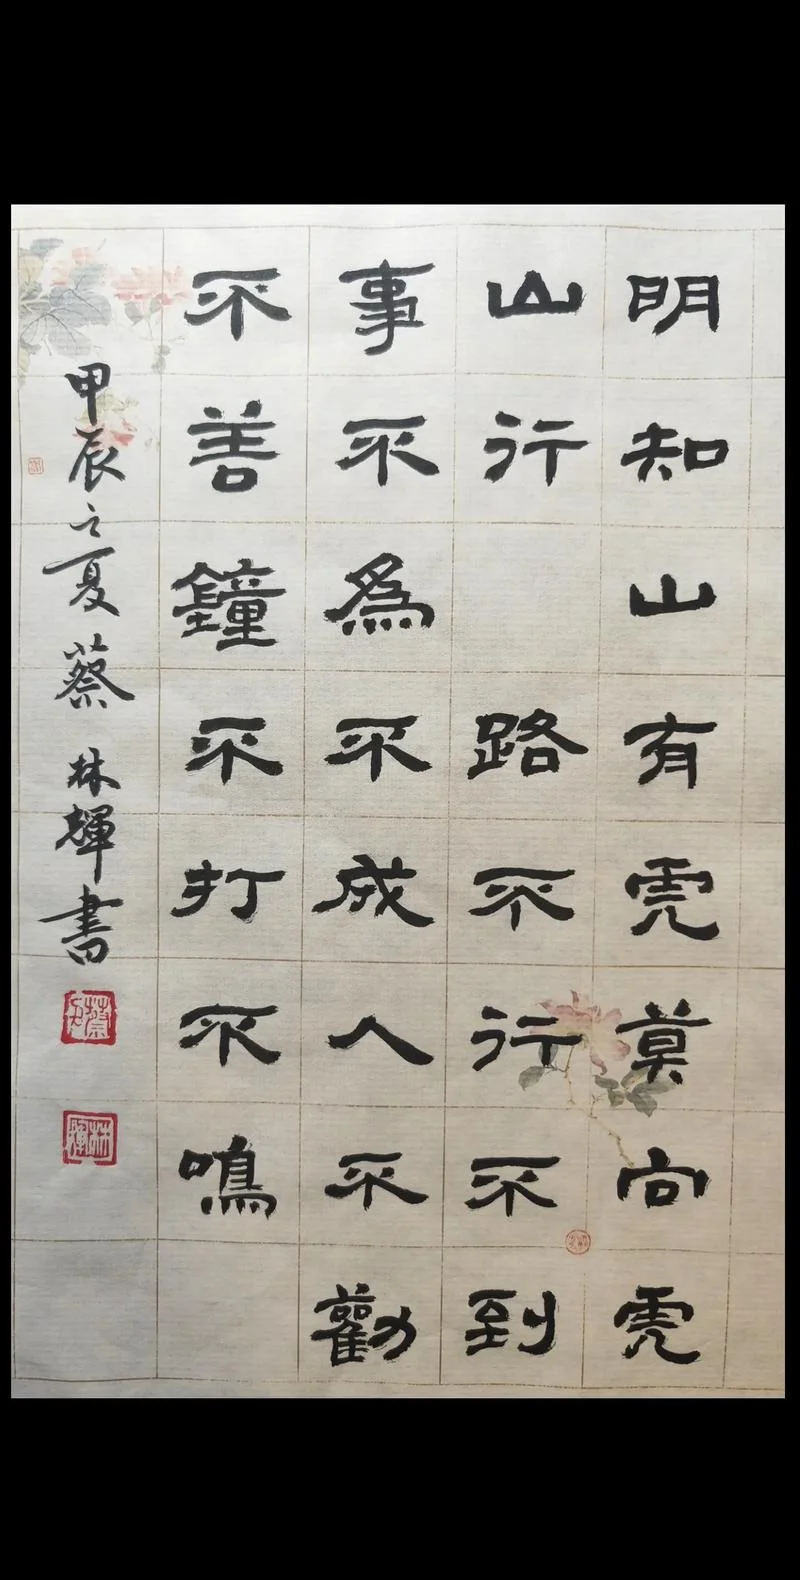 明知山有虎莫向虎
山行 路不行不到
事不為不成人不勸
不善鐘不打不鳴
甲辰之夏蔡林輝書
蔡印
林輝